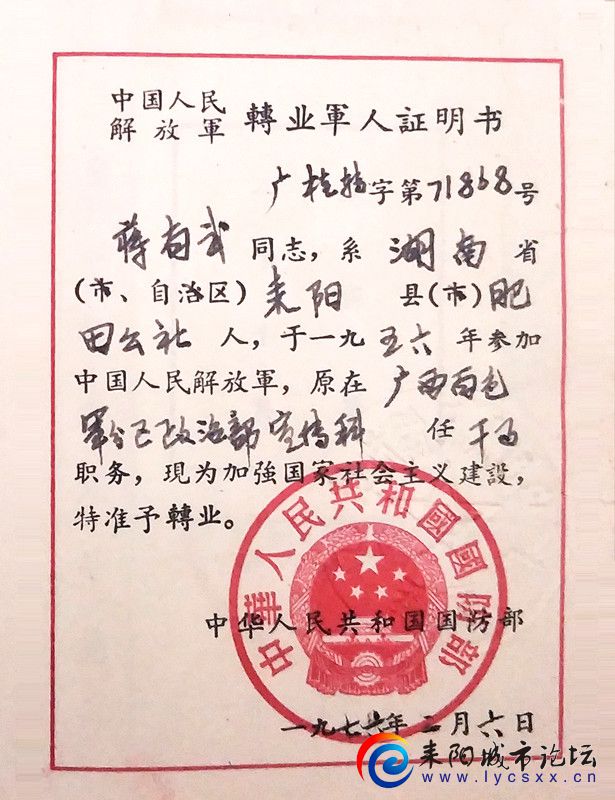 中国人民
解放軍
轉业軍人証明书
广桂转字第71868号
蒋南武 同志，系 湖南 省
(市、自治区) 耒阳 县(市) 肥
田公社 人，于一九 五六 年参加
中国人民解放軍，原在 广西百色
军分区政治部宣传科 任 干事
职务，現为加強国家社会主义建設，
特准予轉业。
中華人民共和國國防部
中华人民共和国国防部
一九七六年二月六日
耒阳城市论坛
www.lycsxx.cn